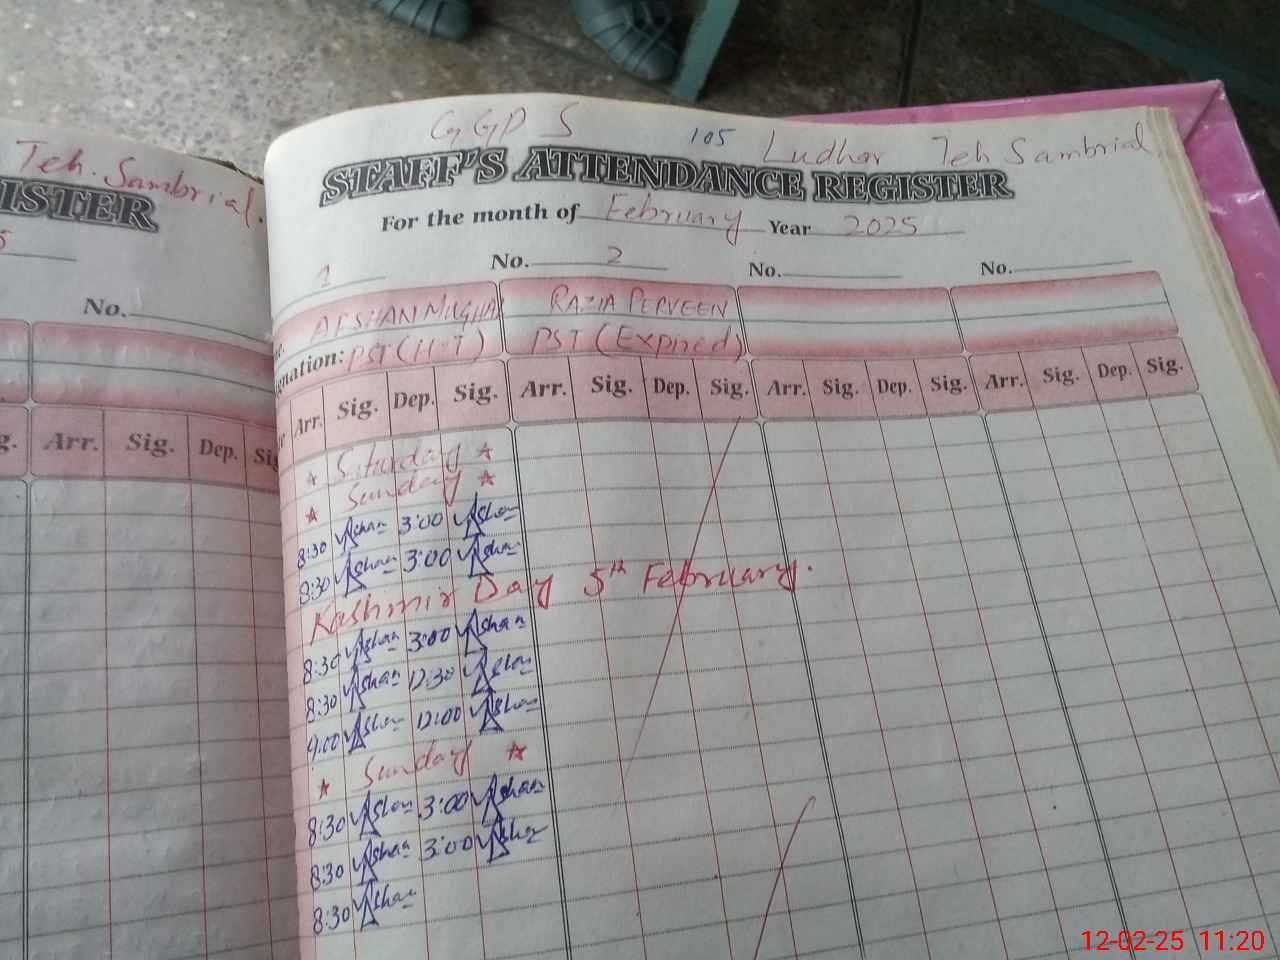 Teh. Sambrial.
ISTER
5
No.
g. Arr. Sig. Dep. Si
GGPS 105 Ludhar Teh Sambrial
STAFF'S ATTENDANCE REGISTER
For the month of February Year 2025
1 No. 2 No. No.
AFSHAN MUGHAL RAZIA PERVEEN
nation: PST (H-T) PST (Expired)
Arr. Sig. Dep. Sig. Arr. Sig. Dep. Sig. Arr. Sig. Dep. Sig. Arr. Sig. Dep. Sig.
Saturday
Sunday
8:30 Afshan 3:00 Afshan
8:30 Afshan 3:00 Afshan
Kashmir Day 5th February.
8:30 Afshan 3:00 Afshan
8:30 Afshan 12:30 Afshan
9:00 Afshan 12:00 Afshan
Sunday
8:30 Afshan 3:00 Afshan
8:30 Afshan 3:00 Afshan
8:30 Afshan
12-02-25 11:20